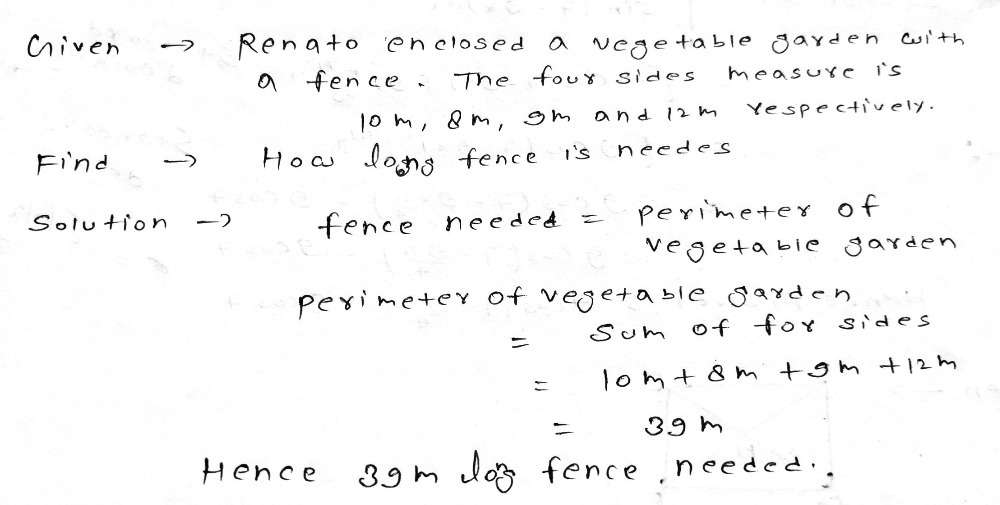 Given → Renato enclosed a vegetable garden with
a fence. The four sides measure is
10 m, 8 m, 9m and 12 m respectively.
Find → How long fence is needes
Solution → fence needed = perimeter of
vegetable garden
perimeter of vegetable garden
= Sum of for sides
= 10 m + 8 m + 9 m + 12 m
= 39 m
Hence 39 m log fence needed.